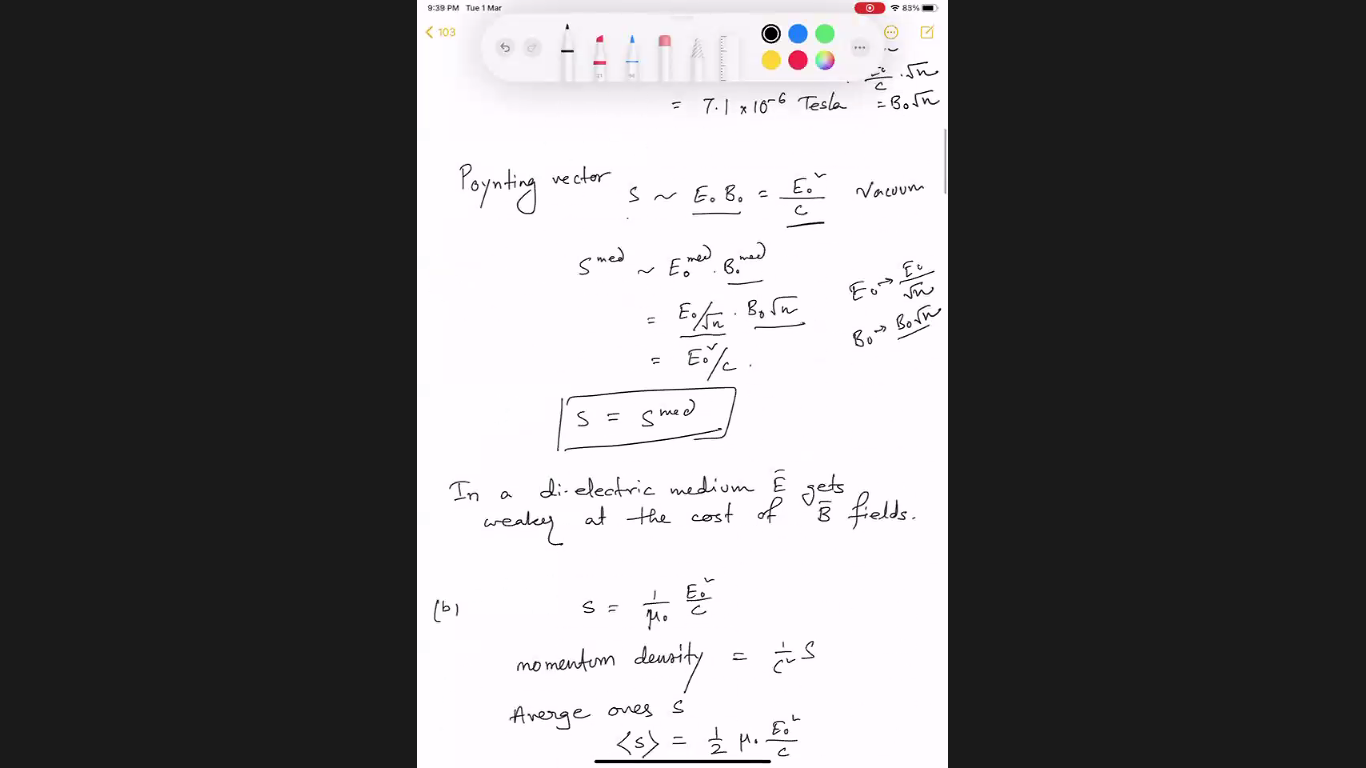 9:39 PM Tue 1 Mar
83%
103
/c · √n
= 7.1 × 10⁻⁶ Tesla = B₀√n
Poynting vector S ~ E₀ B₀ = E₀²/c Vacuum
S^med ~ E₀^med · B₀^med
= E₀/√n · B₀√n
= E₀²/c .
E₀ → E₀/√n
B₀ → B₀√n
S = S^med
In a di-electric medium E̅ gets
weaker at the cost of B̅ fields.
(b) S = 1/μ₀ E₀²/c
momentum density = 1/c² S
Averge ones S
⟨S⟩ = 1/2 μ₀ E₀²/c